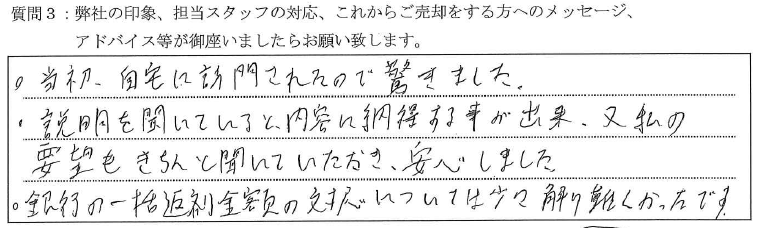 質問3：弊社の印象、担当スタッフの対応、これからご売却をする方へのメッセージ、
アドバイス等が御座いましたらお願い致します。
。当初、自宅に訪問されたので驚きました。
・説明を聞いていると、内容に納得する事が出来、又私の
要望もきちんと聞いていただき、安心しました
。銀行の一括返剤金額の対応については少々解り難くかったです